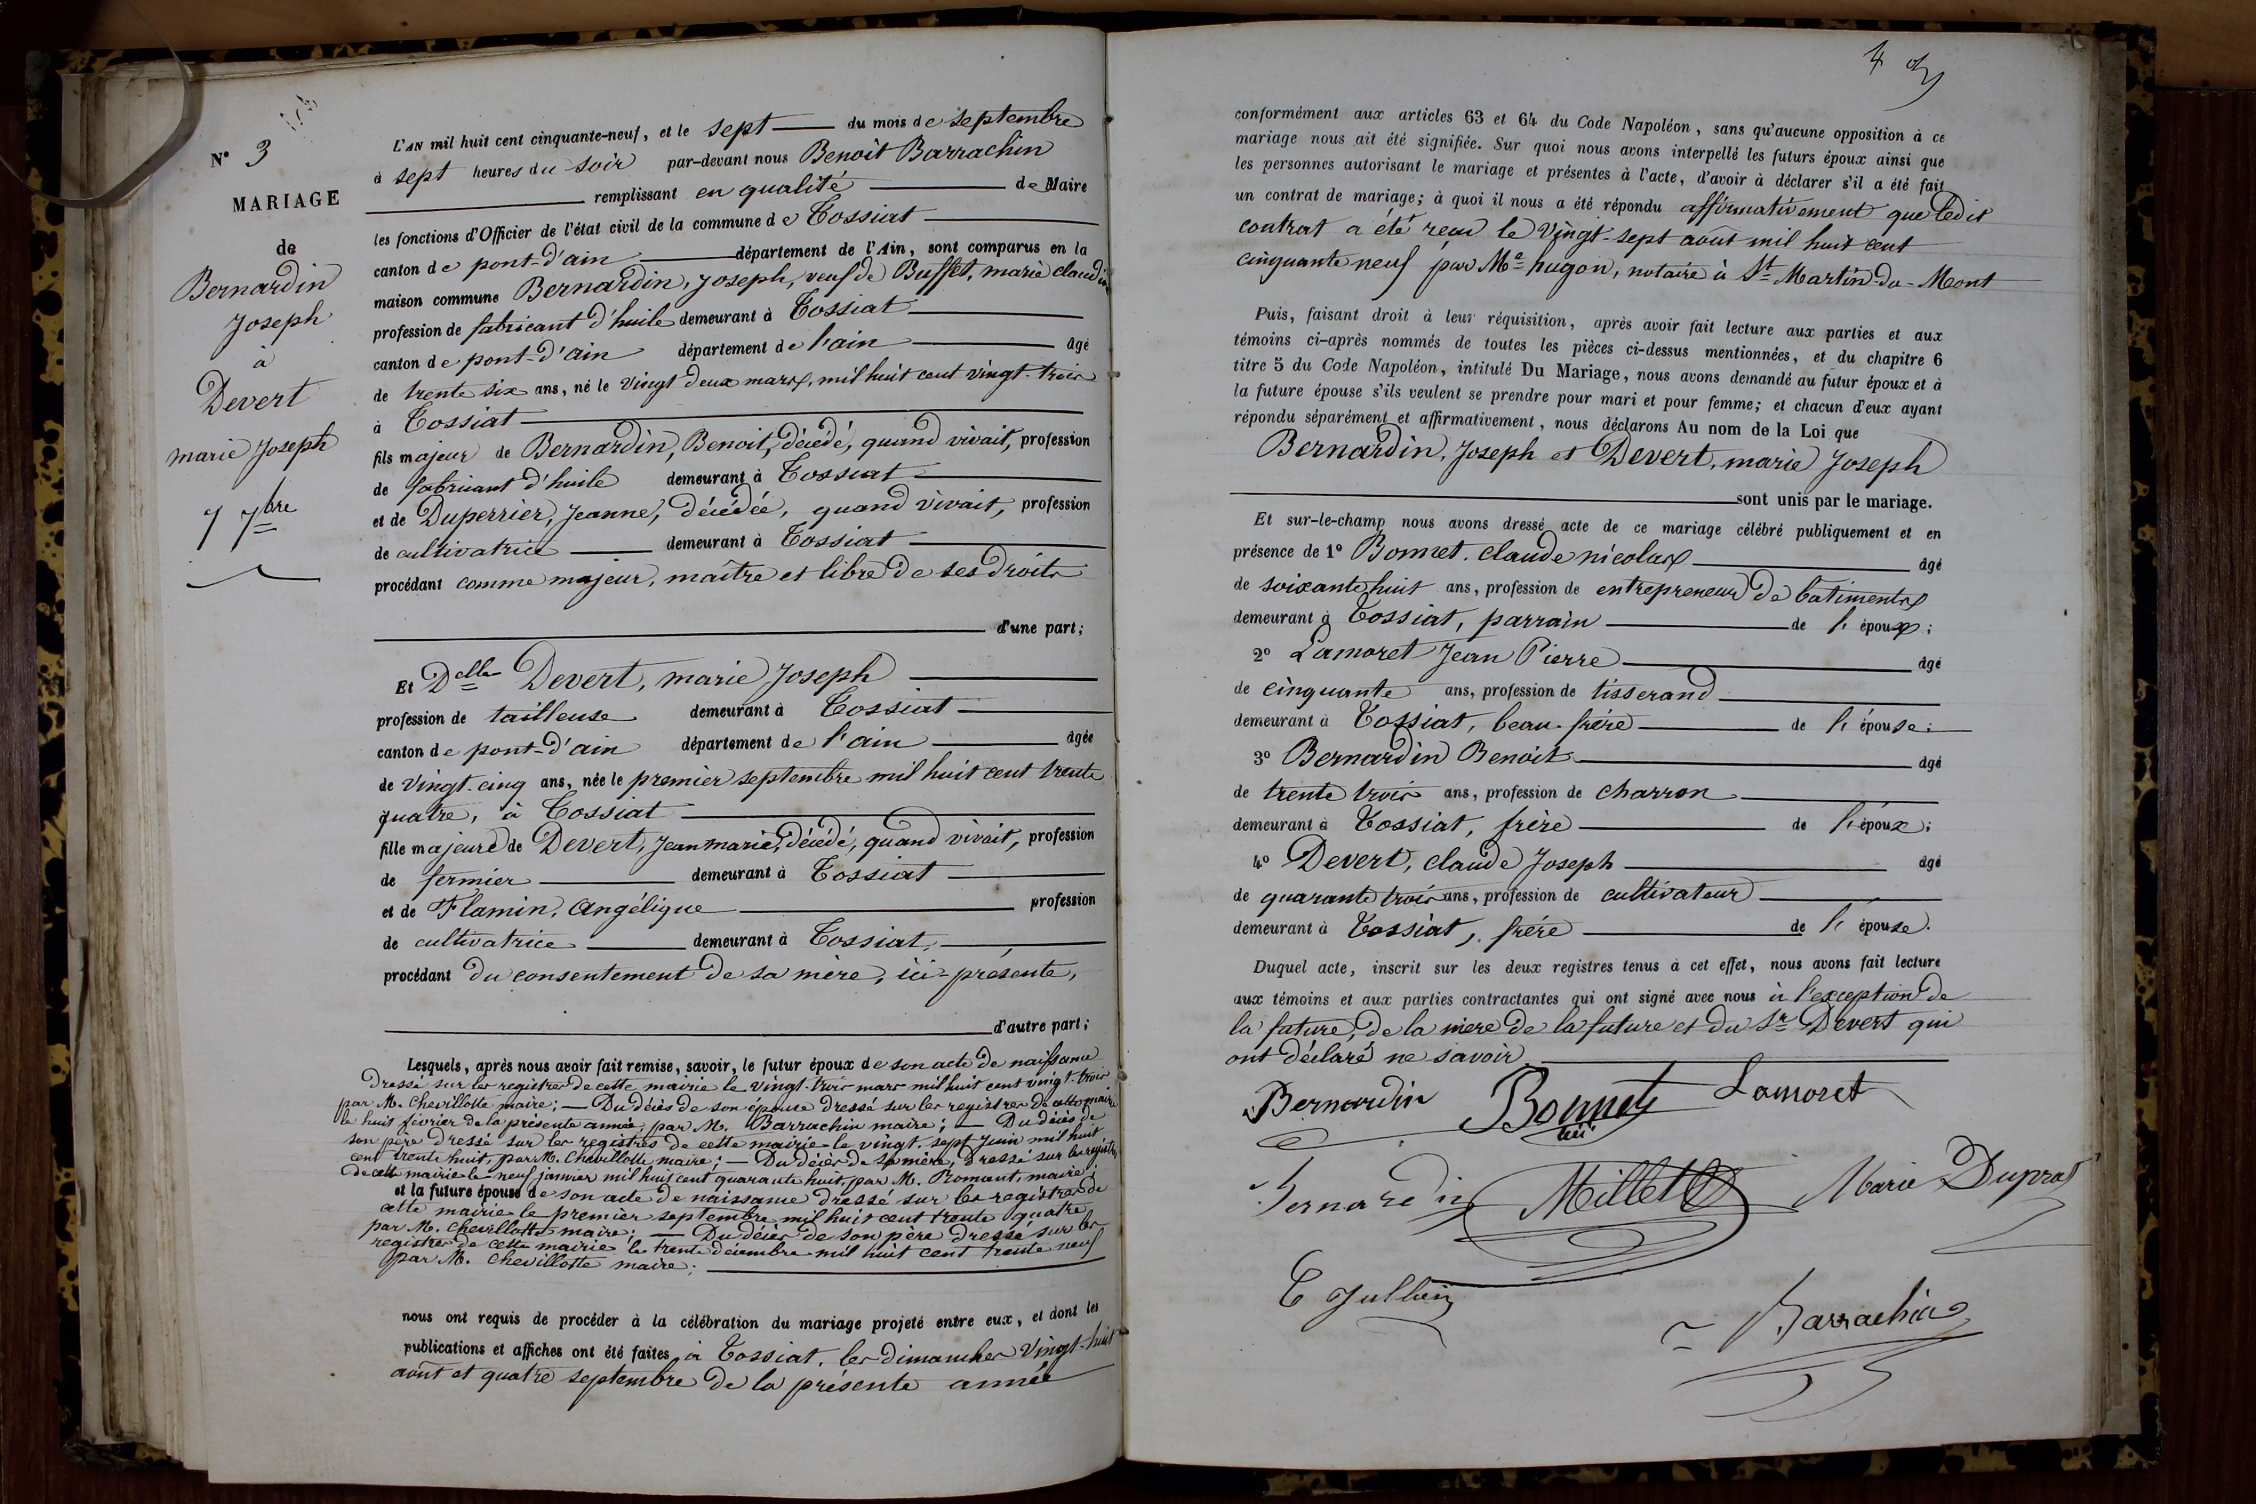 N° 3
MARIAGE
de
Bernardin
Joseph
à
Devert
marie Joseph
7 7bre
L'AN mil huit cent cinquante-neuf, et le sept du mois de septembre
à sept heures du soir par-devant nous Benoit Barrachin
remplissant en qualité de Maire
les fonctions d'Officier de l'état civil de la commune de Tossiat
canton de pont-d'ain département de l'Ain, sont comparus en la
maison commune Bernardin, Joseph, veuf de Buffet, marie claudine
profession de fabricant d'huile demeurant à Tossiat
canton de pont-d'ain département de l'ain âgé
de trente six ans, né le vingt deux mars, mil huit cent vingt-trois
à Tossiat
fils majeur de Bernardin, Benoit, décédé, quand vivait, profession
de fabricant d'huile demeurant à Tossiat
et de Duperrier, Jeanne, décédée, quand vivait, profession
de cultivatrice demeurant à Tossiat
procédant comme majeur, maître et libre de ses droits
d'une part;
Et Delle Devert, marie Joseph
profession de tailleuse demeurant à Tossiat
canton de pont-d'ain département de l'ain âgée
de vingt-cinq ans, née le premier septembre mil huit cent trente
quatre, à Tossiat
fille majeure de Devert, Jean marie, décédé, quand vivait, profession
de fermier demeurant à Tossiat
et de Flamin, Angélique profession
de cultivatrice demeurant à Tossiat,
procédant du consentement de sa mère, ici-présente,
d'autre part;
Lesquels, après nous avoir fait remise, savoir, le futur époux de son acte de naissance
dressé sur les registres de cette mairie le vingt-trois mars mil huit cent vingt-trois
par M. Chevillotte maire; — Du décès de son épouse dressé sur les registres de cette mairie
le huit février de la présente année, par M. Barrachin maire; — Du décès de
son père dressé sur les registres de cette mairie le vingt-sept Juin mil huit
cent trente huit, par M. Chevillotte maire; — Du décès de sa mère, dressé sur les registres
de cette mairie le neuf janvier mil huit cent quarante huit, par M. Romant, maire;
et la future épouse de son acte de naissance dressé sur les registres de
cette mairie le premier septembre mil huit cent trente quatre,
par M. Chevillotte maire; — Du décès de son père dressé sur les
registres de cette mairie le trente décembre mil huit cent trente neuf
par M. Chevillotte maire;
nous ont requis de procéder à la célébration du mariage projeté entre eux, et dont les
publications et affiches ont été faites à Tossiat, les dimanches vingt-huit
août et quatre septembre de la présente année
conformément aux articles 63 et 64 du Code Napoléon, sans qu'aucune opposition à ce
mariage nous ait été signifiée. Sur quoi nous avons interpellé les futurs époux ainsi que
les personnes autorisant le mariage et présentes à l'acte, d'avoir à déclarer s'il a été fait
un contrat de mariage; à quoi il nous a été répondu affirmativement que ledit
contrat a été reçu le vingt-sept août mil huit cent
cinquante neuf par Me hugon, notaire à St-Martin-du-Mont
Puis, faisant droit à leur réquisition, après avoir fait lecture aux parties et aux
témoins ci-après nommés de toutes les pièces ci-dessus mentionnées, et du chapitre 6
titre 5 du Code Napoléon, intitulé Du Mariage, nous avons demandé au futur époux et à
la future épouse s'ils veulent se prendre pour mari et pour femme; et chacun d'eux ayant
répondu séparément et affirmativement, nous déclarons Au nom de la Loi que
Bernardin, Joseph et Devert, marie Joseph
sont unis par le mariage.
Et sur-le-champ nous avons dressé acte de ce mariage célébré publiquement et en
présence de 1° Bonnet, claude nicolas âgé
de soixante huit ans, profession de entrepreneur de batiments
demeurant à Tossiat, parrain de l'époux;
2° Lamoret Jean Pierre âgé
de cinquante ans, profession de tisserand
demeurant à Tossiat, beau-frère de l'épouse;
3° Bernardin Benoit âgé
de trente trois ans, profession de charron
demeurant à Tossiat, frère de l'époux;
4° Devert, claude Joseph âgé
de quarante trois ans, profession de cultivateur
demeurant à Tossiat, frère de l'épouse.
Duquel acte, inscrit sur les deux registres tenus à cet effet, nous avons fait lecture
aux témoins et aux parties contractantes qui ont signé avec nous à l'exception de
la future, de la mère de la future et du Sr Devert qui
ont déclaré ne savoir.
Bernardin Bonnet Lamoret
Bernardin Millet Marie Duprat
C Jullien
Barrachin